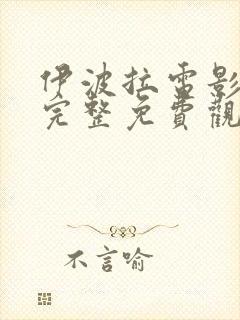 伊波拉雷影
完整免費觀
不言喻